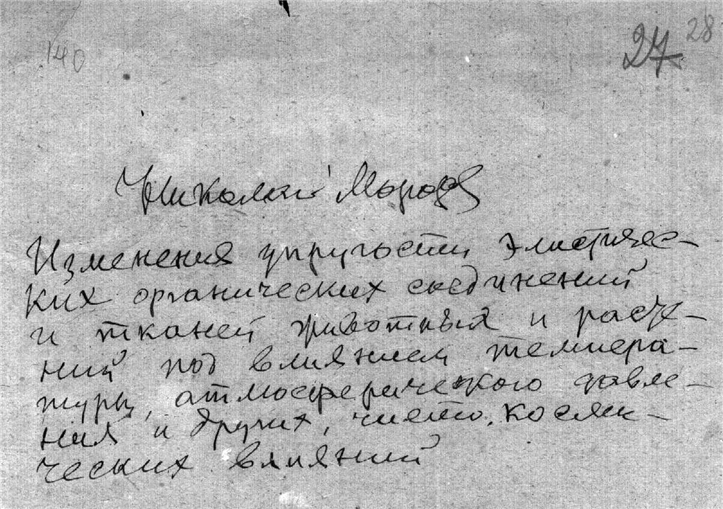 140
27 28
Николай Мороз
Изменения упругости эластичес-
ких органических соединений
и тканей животных и расте-
ний под влиянием темпера-
туры, атмосферического давле-
ния и других, чисто косми-
ческих влияний